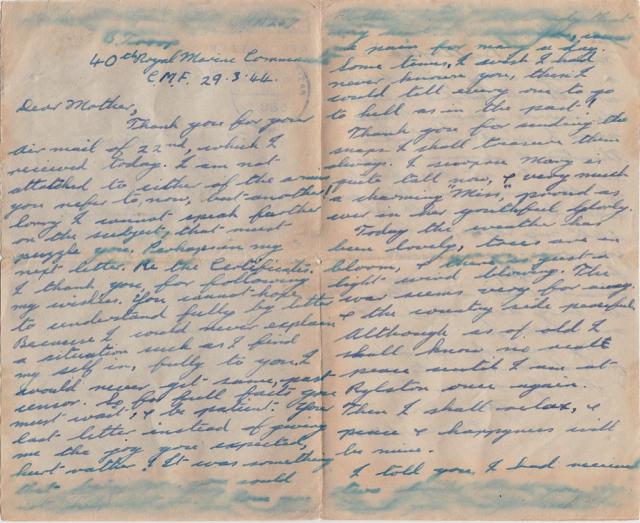 B Troop
40th Royal Marine Commando
C.M.F. 29.3.44.
Dear Mother,
Thank you for your
Air mail of 22nd, which I
received today. I am not
attatched to either of the armies
you refer to, now, but another!
Sorry I cannot speak further
on the subject, that must
puzzle you. Perhaps in my
next letter. Re the Certificates.
I thank you, for following
my wishes. You cannot hope
to understand fully by letter
Because I could never explain
a situation such as I find
my self in, fully to you, I
would never get same, past
censor. So for full facts you
must wait, & be patient. Your
last letter instead of giving
me the joy you expected,
hurt rather! It was something
that
could
pain for many a day.
Some times, I wish I had
never known you, then I
could tell every one to go
to hell as in the past!
Thank you for sending the
snaps I shall treasure them
always. I suppose Mary is
quite tall now, & very much
a charming "Miss", proud as
ever in her youthful glory.
Today the weather has
been lovely, trees are in
bloom, & there is just a
light wind blowing. The
war seems very far away.
& the country side peaceful
Although as of old I
shall know no real
peace until I am at
Rylston once again.
Then I shall relax, &
peace & happyness will
be mine.
I told you I had received
two